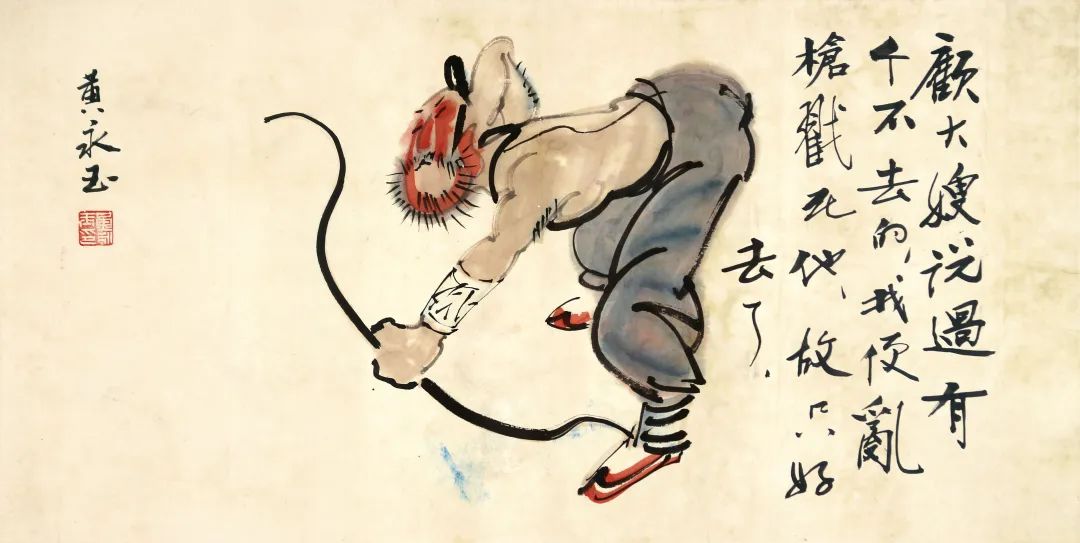 顧大嫂说過有
个不去的,我便亂
槍戳死他,故只好
去了.
黄永玉